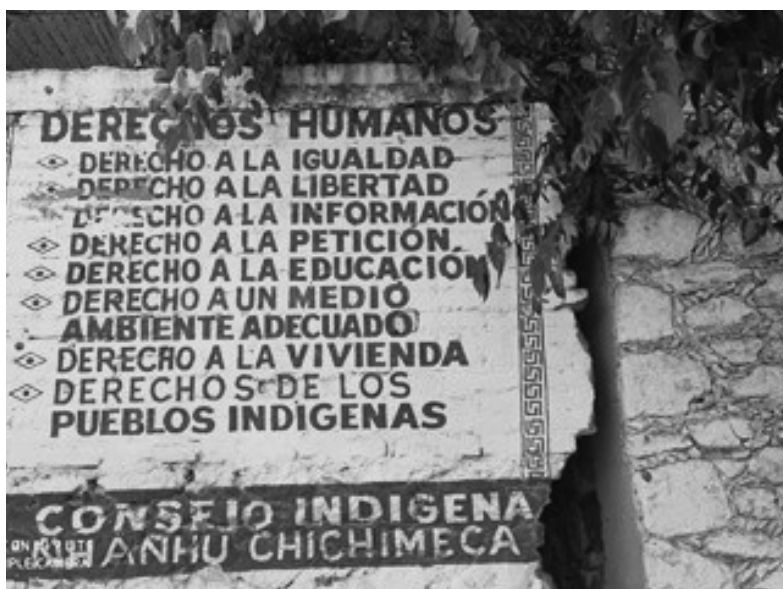 DERECHOS HUMANOS
DERECHO A LA IGUALDAD
DERECHO A LA LIBERTAD
DERECHO A LA INFORMACIÓN
DERECHO A LA PETICIÓN
DERECHO A LA EDUCACIÓN
DERECHO A UN MEDIO
AMBIENTE ADECUADO
DERECHO A LA VIVIENDA
DERECHOS DE LOS
PUEBLOS INDIGENAS
CONSEJO INDIGENA
ÑAÑHU CHICHIMECA